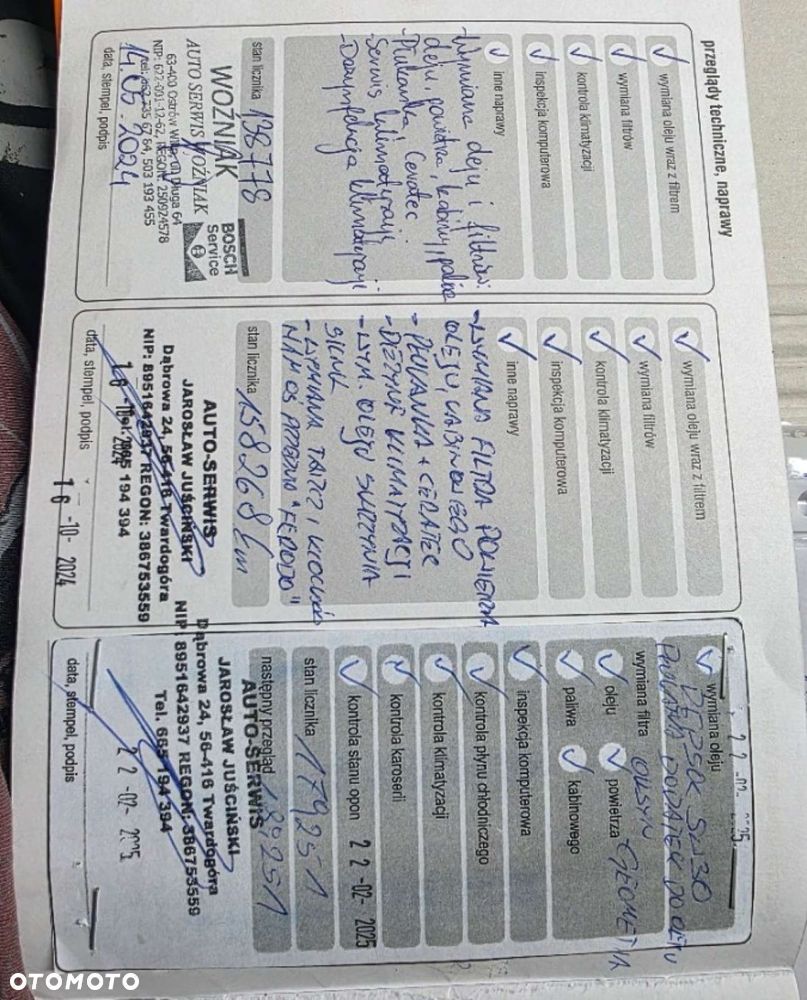 przeglądy techniczne, naprawy
wymiana oleju wraz z filtrem
wymiana filtrów
kontrola klimatyzacji
inspekcja komputerowa
inne naprawy
-Wymiana oleju i filtrów:
oleju, powietrza, kabiny, paliwa
- Płukanka Ceratec
- Serwis klimatyzacji
- Dezynfekcja klimatyzacji
stan licznika 138778
WOŹNIAK
AUTO SERWIS WOŹNIAK
BOSCH
Service
63-400 Ostrów Wlkp. ul. Długa 64
NIP: 622-001-12-62, REGON: 250924578
503 193 455
14.05.2024
data, stempel, podpis
wymiana oleju wraz z filtrem
wymiana filtrów
kontrola klimatyzacji
inspekcja komputerowa
inne naprawy
- WYMIANA FILTRA POWIETRZA
OLEJU, KABINOWEGO
- PŁUKANKA + CERATEC
- WYM. OLEJU SKRZYNIA
- WYMIANA TARCZ I KLOCKÓW
"FERODO"
stan licznika 158268 km
AUTO-SERWIS
JAROSŁAW JUŚCIŃSKI
Dąbrowa 24, 56-416 Twardogóra
NIP: 8951642937 REGON: 386753559
194 394
16 -10- 2024
data, stempel, podpis
22 -02- 2025
wymiana oleju
5W30
DODATEK DO OLEJU
wymiana filtra
GEOMETRIA
oleju
powietrza
paliwa
kabinowego
inspekcja komputerowa
kontrola płynu chłodniczego
kontrola klimatyzacji
kontrola karoserii
kontrola stanu opon 22 -02- 2025
stan licznika 179251
następny przegląd 189251
AUTO-SERWIS
JAROSŁAW JUŚCIŃSKI
Dąbrowa 24, 56-416 Twardogóra
NIP: 8951642937 REGON: 386753559
Tel. 665 194 394
22 -02- 2025
data, stempel, podpis
OTOMOTO